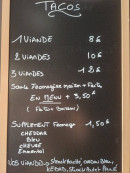 TACOS
1 VIANDE 8€
2 VIANDES 10€
3 VIANDES 12€
Sauce Fromagère maison + Frite
EN MENU + 3,50€
(Frite + Boisson)
SUPLEMENT Fromage 1,50€
CHEDDAR
Bleu
CHEVRE
Emmental
NOS VIANDES : Steak Haché, CORDON Bleu,
KEBAB,